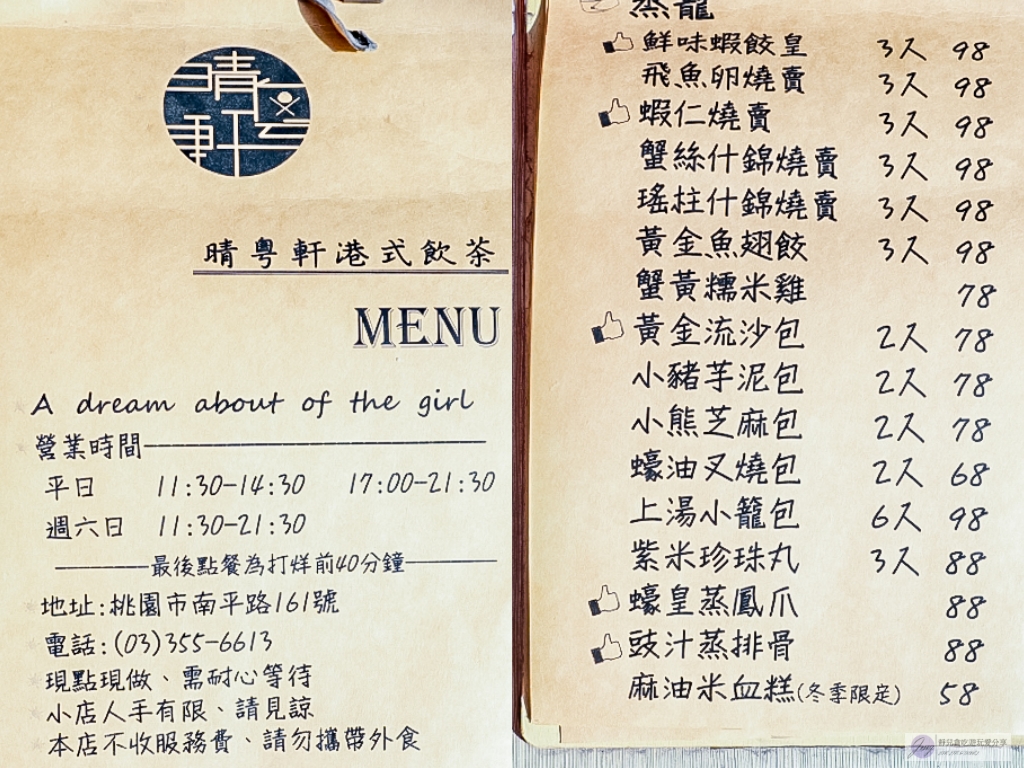 晴粵軒
晴粵軒港式飲茶
MENU
A dream about of the girl
營業時間
平日 11:30-14:30 17:00-21:30
週六日 11:30-21:30
最後點餐為打烊前40分鐘
地址:桃園市南平路161號
電話:(03)355-6613
現點現做、需耐心等待
小店人手有限、請見諒
本店不收服務費、請勿攜帶外食
蒸籠
鮮味蝦餃皇 3入 98
飛魚卵燒賣 3入 98
蝦仁燒賣 3入 98
蟹絲什錦燒賣 3入 98
瑤柱什錦燒賣 3入 98
黃金魚翅餃 3入 98
蟹黃糯米雞 78
黃金流沙包 2入 78
小豬芋泥包 2入 78
小熊芝麻包 2入 78
蠔油叉燒包 2入 68
上湯小籠包 6入 98
紫米珍珠丸 3入 88
蠔皇蒸鳳爪 88
豉汁蒸排骨 88
麻油米血糕(冬季限定) 58